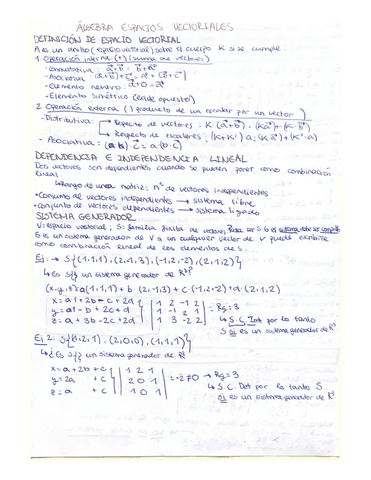 ÁLGEBRA ESPACIOS VECTORIALES
DEFINICIÓN DE ESPACIO VECTORIAL
A es un (espacio vectorial) sobre el cuerpo K si se cumple:
1. Operación interna (+) (suma de vectores)
- Conmutativa: a⃗+b⃗ = b⃗+a⃗
- Asociativa (a⃗+b⃗)+c⃗ = a⃗+(b⃗+c⃗)
- Elemento neutro: a⃗+0 = a⃗
- Elemento Simétrico (cada opuesto)
2. Operación externa (·) (producto de un escalar por un vector)
- Distributiva: → Respecto de vectores: K·(a⃗+b⃗) = (Ka⃗)+(K·b⃗)
↳ Respecto de escalares: (K+K')·a = (K·a⃗)+(K'·a)
- Asociativa: (a·b)·c⃗ = a·(b·c⃗)
DEPENDENCIA E INDEPENDENCIA LINEAL
Dos vectores son dependientes cuando se pueden poner como combinación
lineal.
↳ Rango de una matriz: nº de vectores independientes
• Conjunto de vectores independientes → sistema libre
• Conjunto de vectores dependientes → sistema ligado
SISTEMA GENERADOR
V: espacio vectorial; S: familia finita de vectores. Para ser S.G el sistema debe ser compatible
S es un sistema generador de V si un cualquier vector de V puede escribirse
como combinación lineal de los elementos de S.
Ej: → S{(1,1,1), (2,-1,3), (-1,2,-2), (2,1,2)}
↳ Es S{} un sistema generador de R³?
(x,y,z) = a(1,1,1) + b·(2,-1,3) + c·(-1,2,-2) + d·(2,1,2)
x = a+2b-c+2d | 1 2 -1 2 |
y = a-b+2c+d | 1 -1 2 1 | = Rg=3
z = a+3b-2c+2d | 1 3 -2 2 | ↳ S.C. Por lo tanto
S sí es un sistema generador de R³
Ej 2: S{(1,2,1), (2,0,0), (1,1,1)}
↳ ¿Es S{} un sistema generador de R³
x = a+2b+c | 1 2 1 |
y = 2a +c | 2 0 1 | = -2≠0 → Rg=3
z = a +c | 1 0 1 | ↳ S.C. Det por lo tanto S
sí es un sistema generador de R³